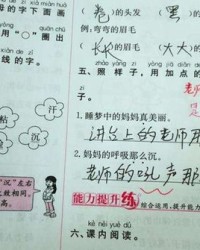 母的字下面画
(卷)的头发 (黑
例:弯弯的眉毛
用"○"圈出
(长长)的眉毛 (大大)的
线的字。
五、照样子,用加点
子。
粘
汗
沉
1.睡梦中的妈妈真美丽。
讲台上的老师
2.妈妈的呼吸那么沉。
老师的 声那
"沉"左右
能力提升练 综合运用,提升能力
kè nèi yuè dú
六、课内阅读。